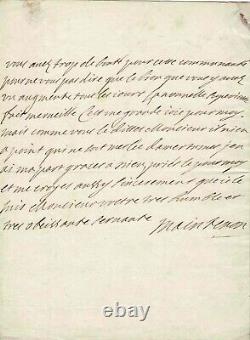 vous avez trop de bonté pour cette communauté
pour ne vous pas dire que le bien que vous y avez
augmente tous les iours la nouvelle
fait merveille C'est une grande ioie pour moy
mais comme vous le dittes Monsieur il n'en
a point qui ne soit meslée d'amertume
ai ma part graces a Dieu priés le pour moy
et me croyes aussy sincerement que ie le
suis Monsieur vostre tres humble et
tres obeissante servante Maintenon